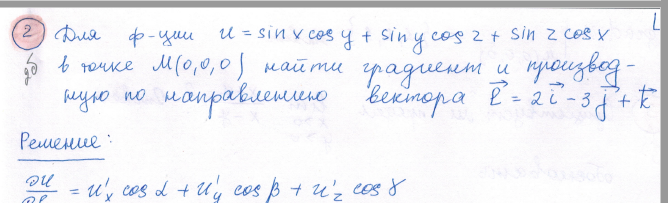 ② Для ф-ции u = sin x cos y + sin y cos z + sin z cos x
в точке M(0,0,0) найти градиент и производ-
ную по направлению вектора ℓ⃗ = 2i⃗ - 3j⃗ + k⃗
Решение:
∂u/∂ℓ = u'x cos α + u'y cos β + u'z cos γ